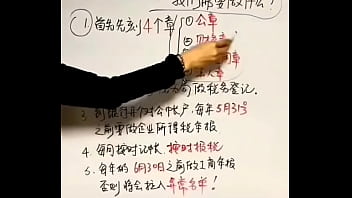 我们需要做什么？
① 首先先刻4个章
① 公章
② 财务章
章
前做税务登记。
3. 到银行开个对公帐户，每年5月31号
之前要做企业所得税年报
4. 每月按时记帐，按时报税
5. 每年的6月30日之前做工商年报
否则将会拉入异常名单！